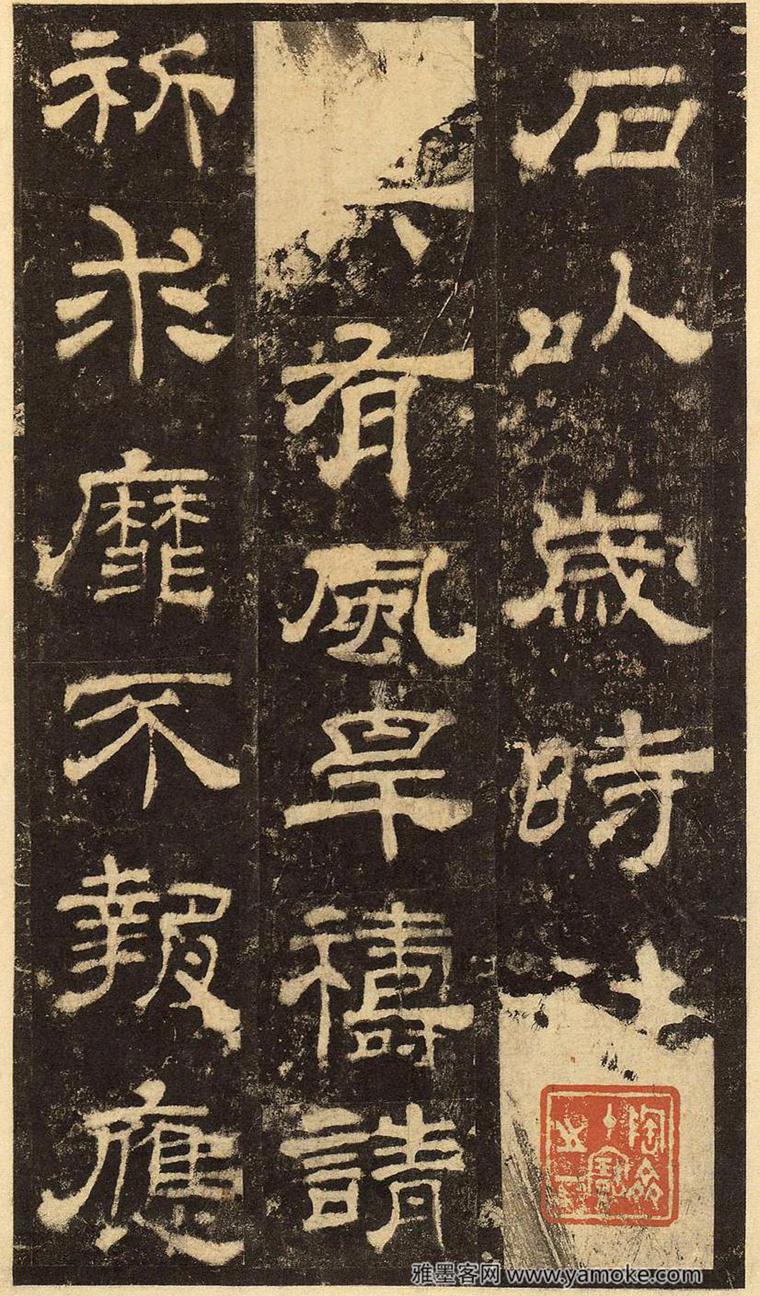 石以歲時
有風旱禱請
祈求靡不報應
雅墨客网 www.yamoke.com